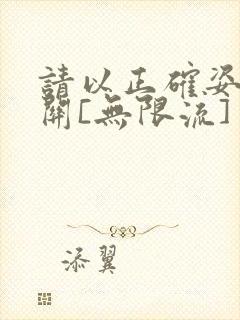 請以正確姿
開[無限流]
添翼